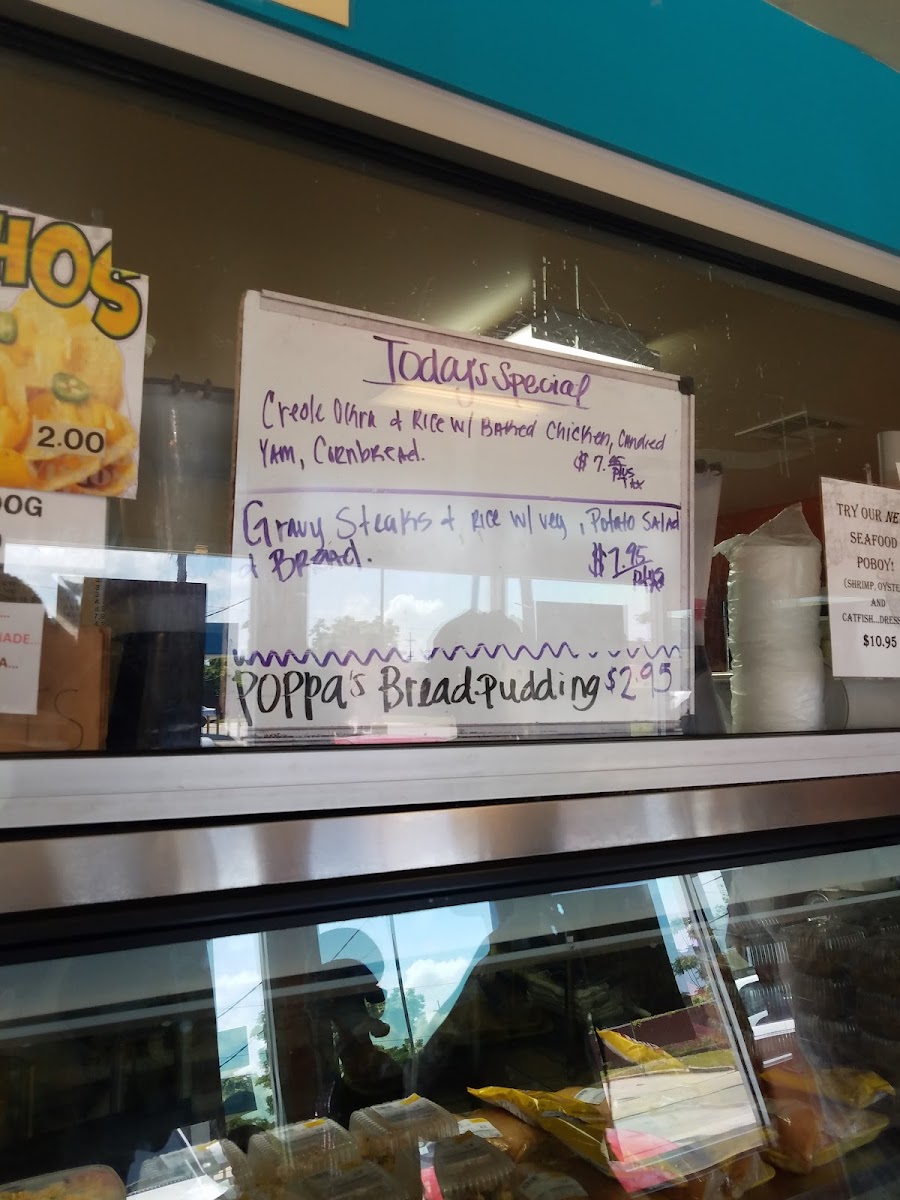 HOS
2.00
OG
ADE...
A...
Today's Special
Creole Okra & Rice w/ Baked Chicken, Candied
Yam, Cornbread.
$7.95
plus
tax
Gravy Steaks &, Rice w/ veg, Potato Salad
& Bread.
$7.95
plus
POPPa's Bread-pudding $2.95
TRY OUR NE
SEAFOOD
POBOY!
(SHRIMP, OYSTE
AND
CATFISH...DRESS
$10.95